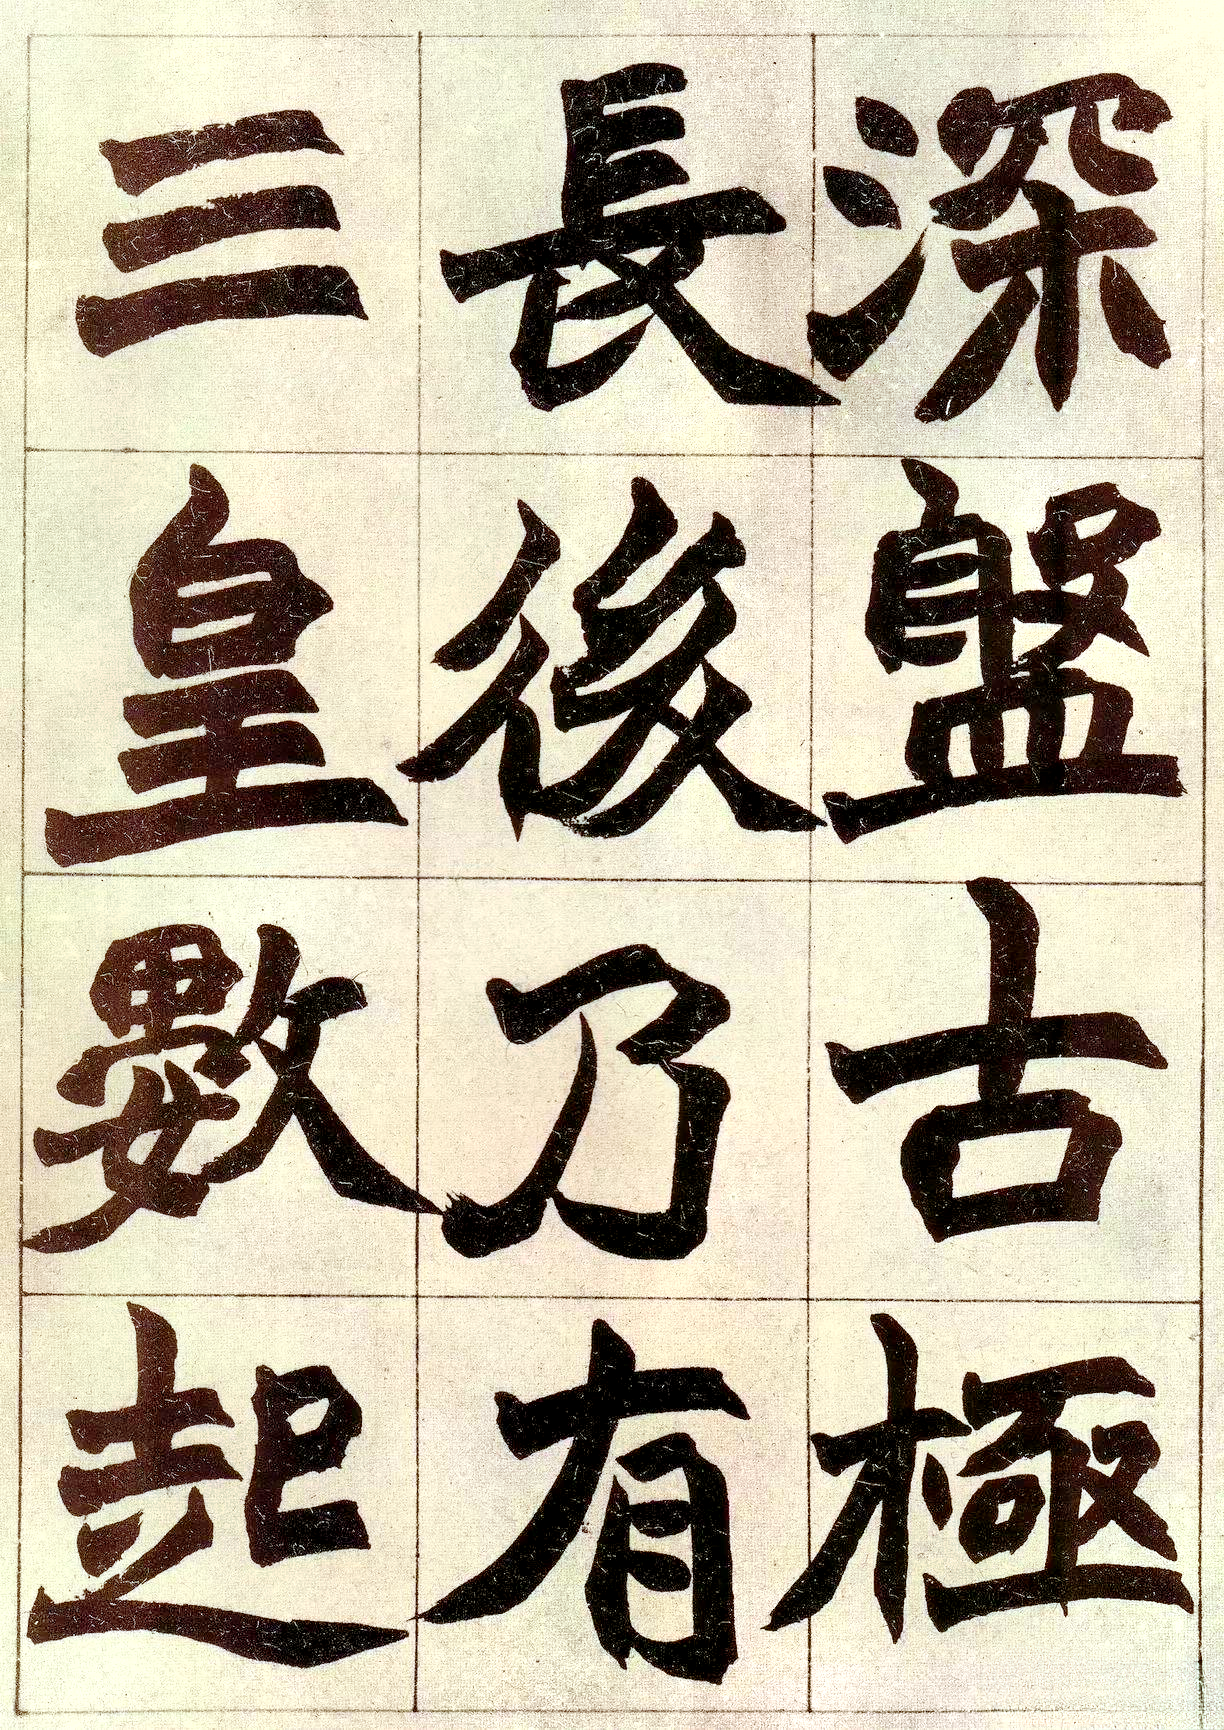 深盤古極
長後乃有
三皇數起